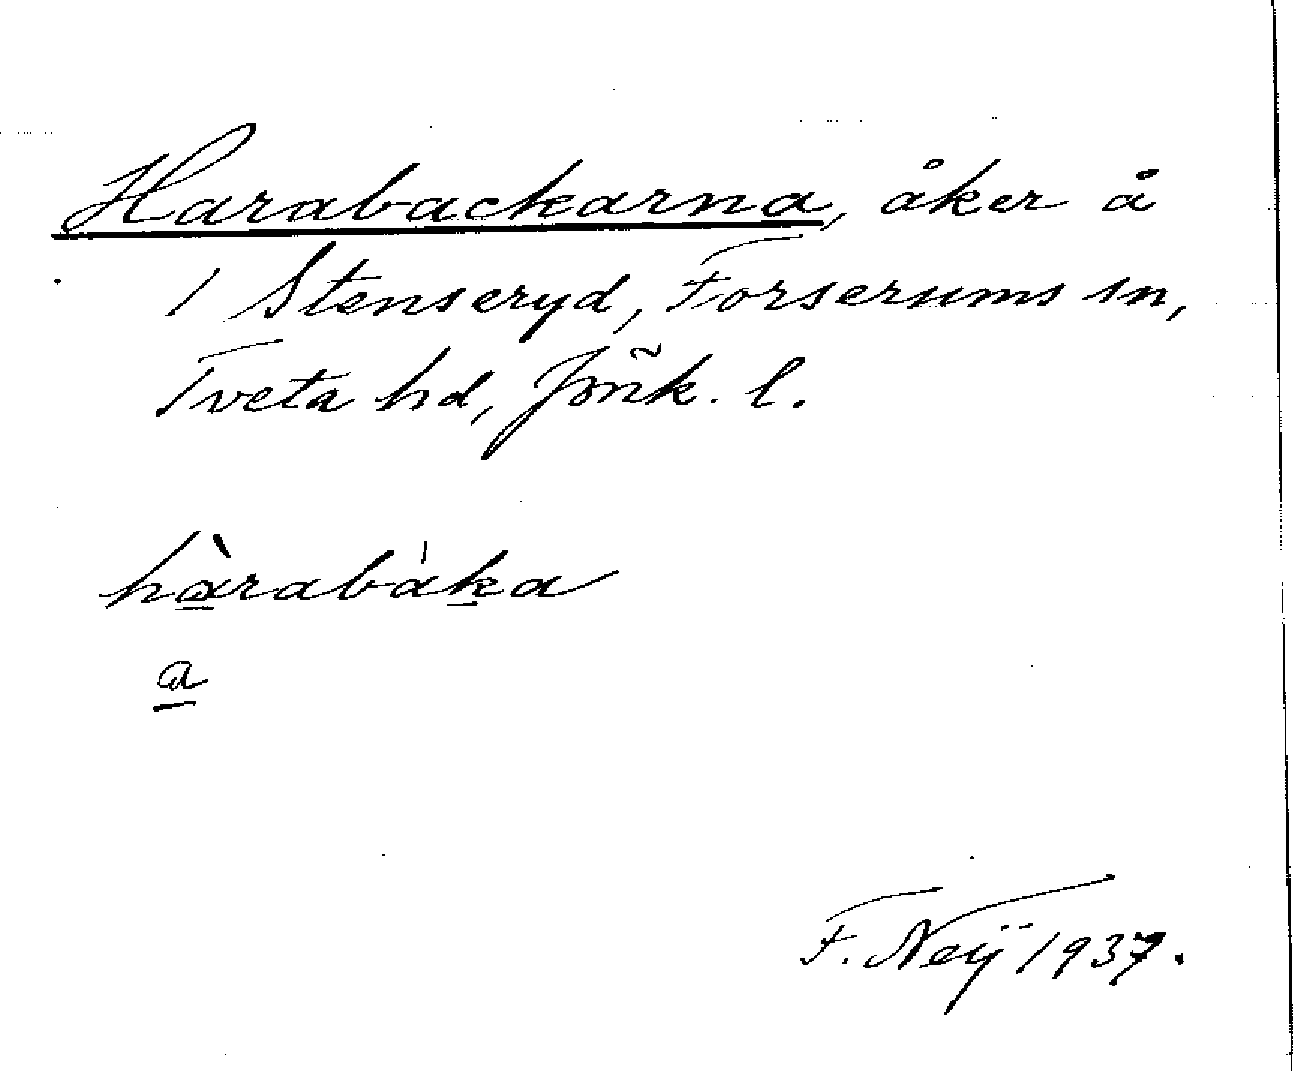 Harabackarna, åker å
1 Stenseryd, Forserums sn,
Tveta hd, Jönk. l.
hàrabáka
a
F. Neij 1937.